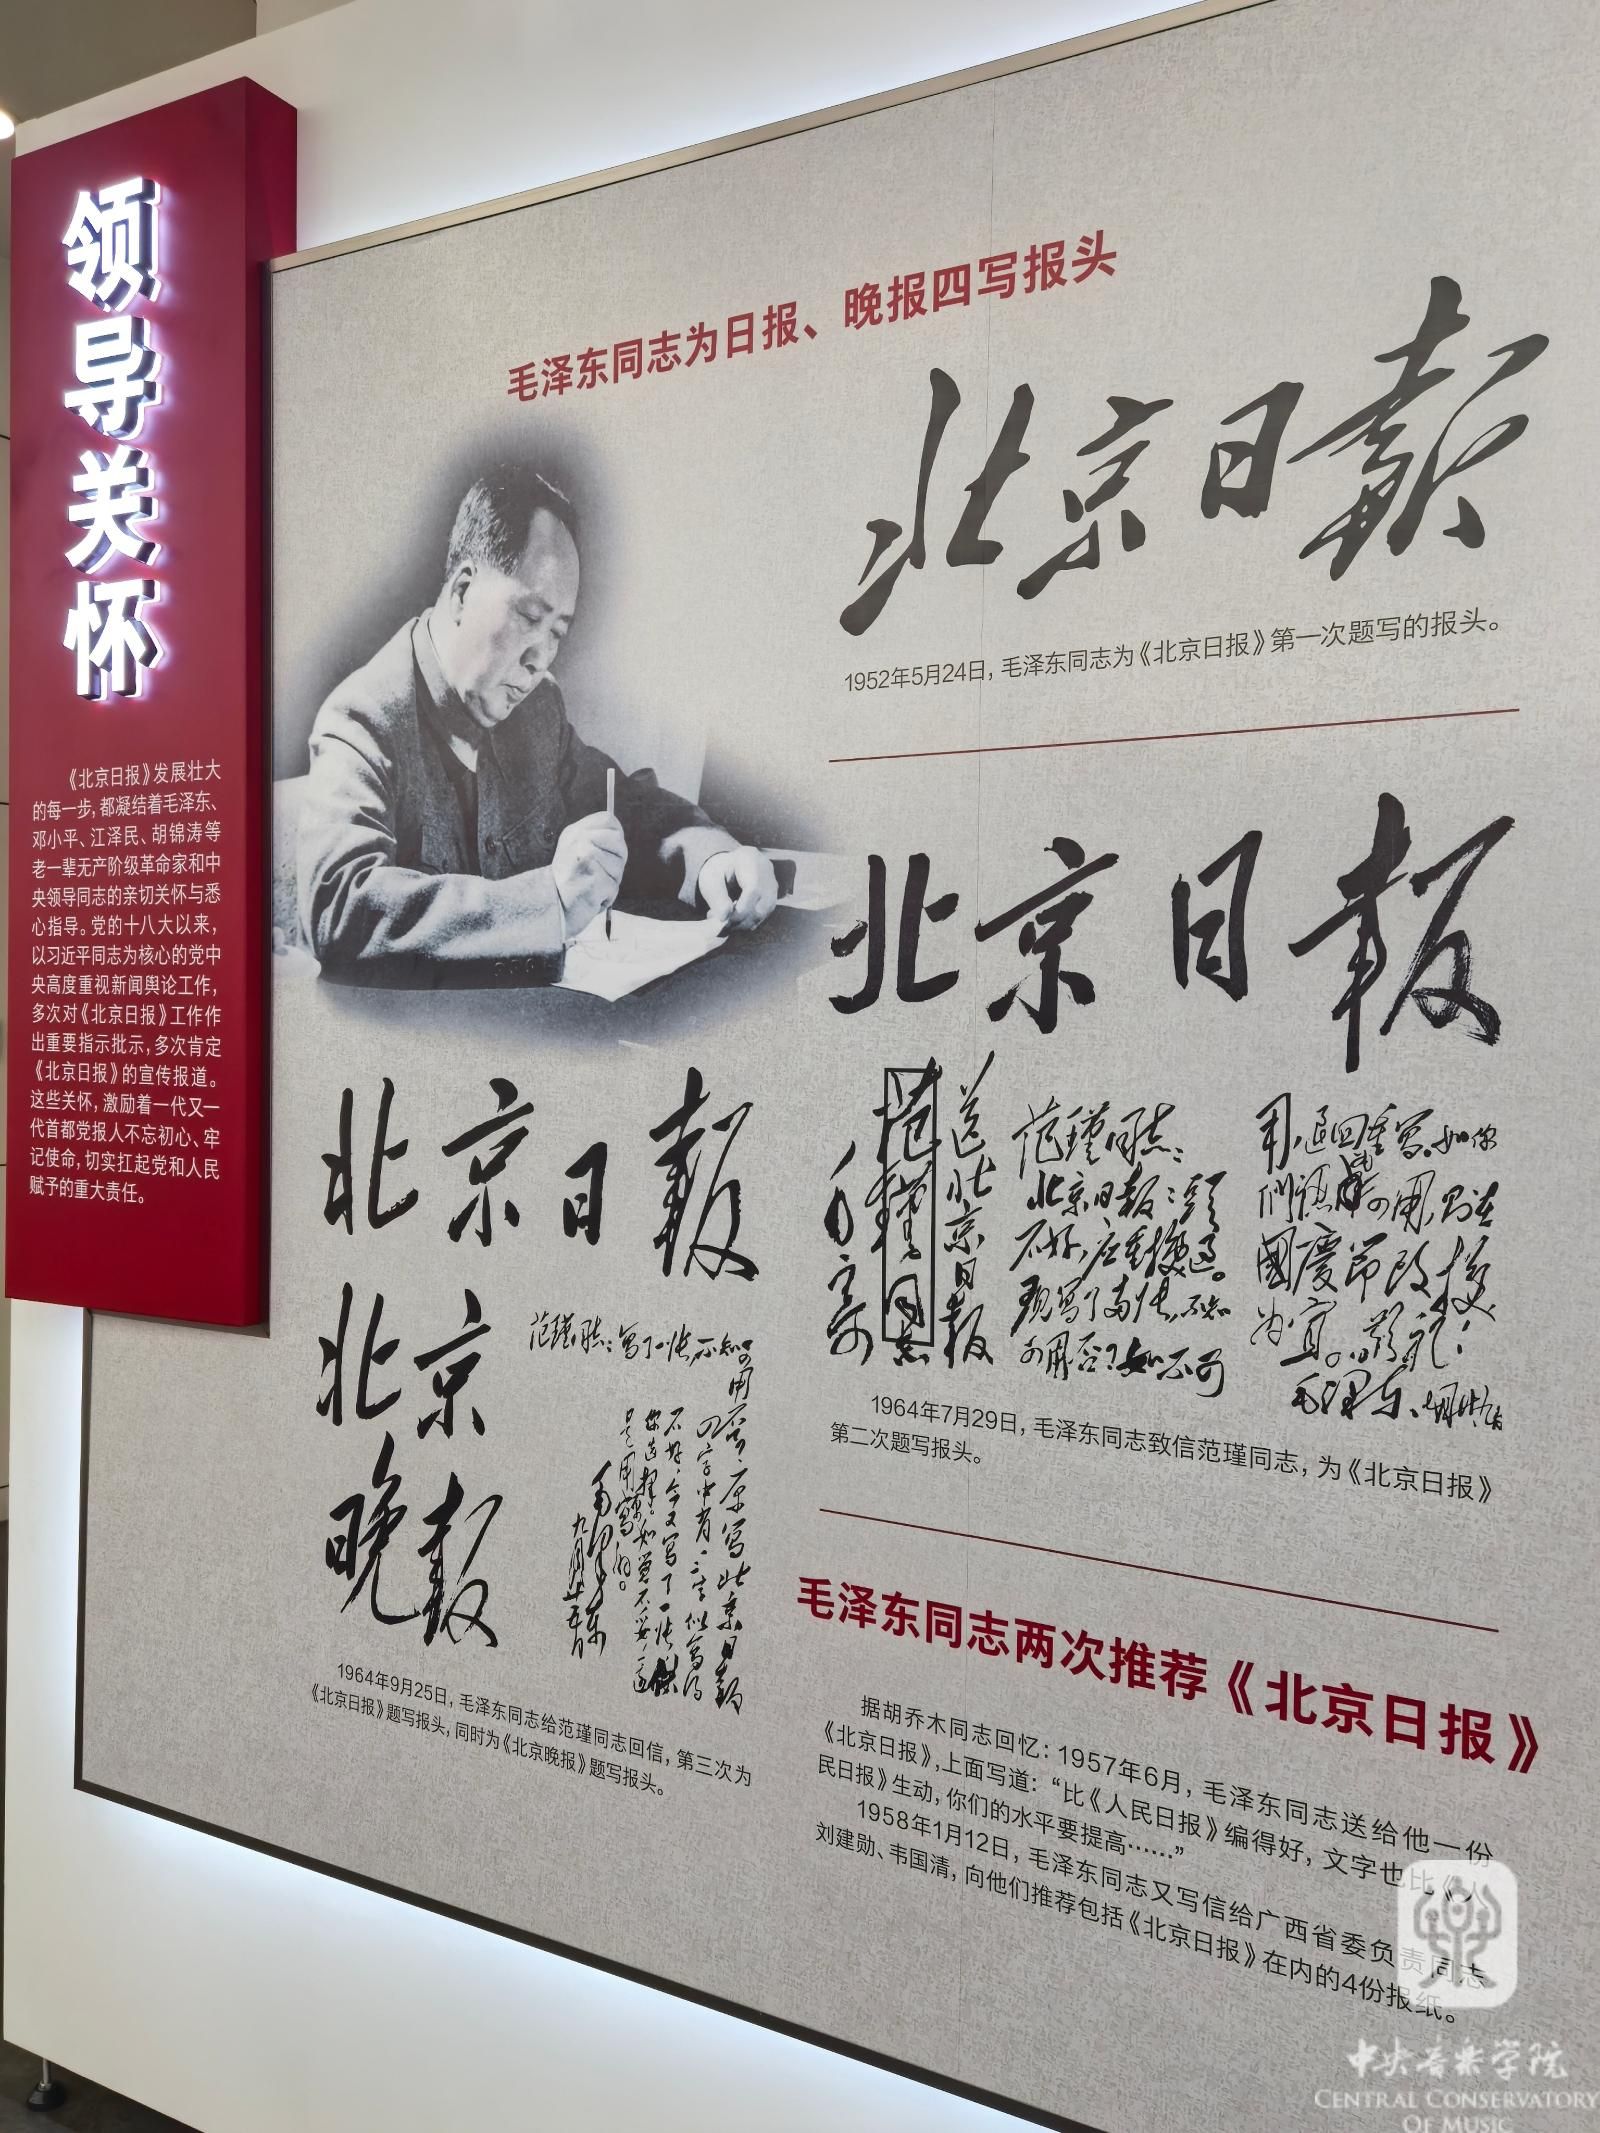 领导关怀
《北京日报》发展壮大
的每一步,都凝结着毛泽东、
邓小平、江泽民、胡锦涛等
老一辈无产阶级革命家和中
央领导同志的亲切关怀与悉
心指导。党的十八大以来,
以习近平同志为核心的党中
央高度重视新闻舆论工作,
多次对《北京日报》工作作
出重要指示批示,多次肯定
《北京日报》的宣传报道。
这些关怀,激励着一代又一
代首都党报人不忘初心、牢
记使命,切实扛起党和人民
赋予的重大责任。
毛泽东同志为日报、晚报四写报头
北京日报
1952年5月24日,毛泽东同志为《北京日报》第一次题写的报头。
北京日報
送北京日报
范瑾同志
毛寄
范瑾同志:
北京日报:头
不好,应重换过。
现写了两张,不知
可用否?如不可
用,退回重写。如你
們認為可用,则在
國慶节改换
为宜。敬礼!
毛泽东 七月廿九日
1964年7月29日,毛泽东同志致信范瑾同志,为《北京日报》
第二次题写报头。
北京日報
北京
晚報
范瑾同志:写了一张,不知可用
否?原写北京日報
四字中有一二字似写得
不好,今又写了一张,供
你选择。如觉不妥,还
是用旧写的。
毛泽东
九月廿五日
1964年9月25日,毛泽东同志给范瑾同志回信,第三次为
《北京日报》题写报头,同时为《北京晚报》题写报头。
毛泽东同志两次推荐《北京日报》
据胡乔木同志回忆:1957年6月,毛泽东同志送给他一份
《北京日报》,上面写道:“比《人民日报》编得好,文字也比《人
民日报》生动,你们的水平要提高……”
1958年1月12日,毛泽东同志又写信给广西省委负责同志
刘建勋、韦国清,向他们推荐包括《北京日报》在内的4份报纸。
中央音乐学院
CENTRAL CONSERVATORY
OF MUSIC